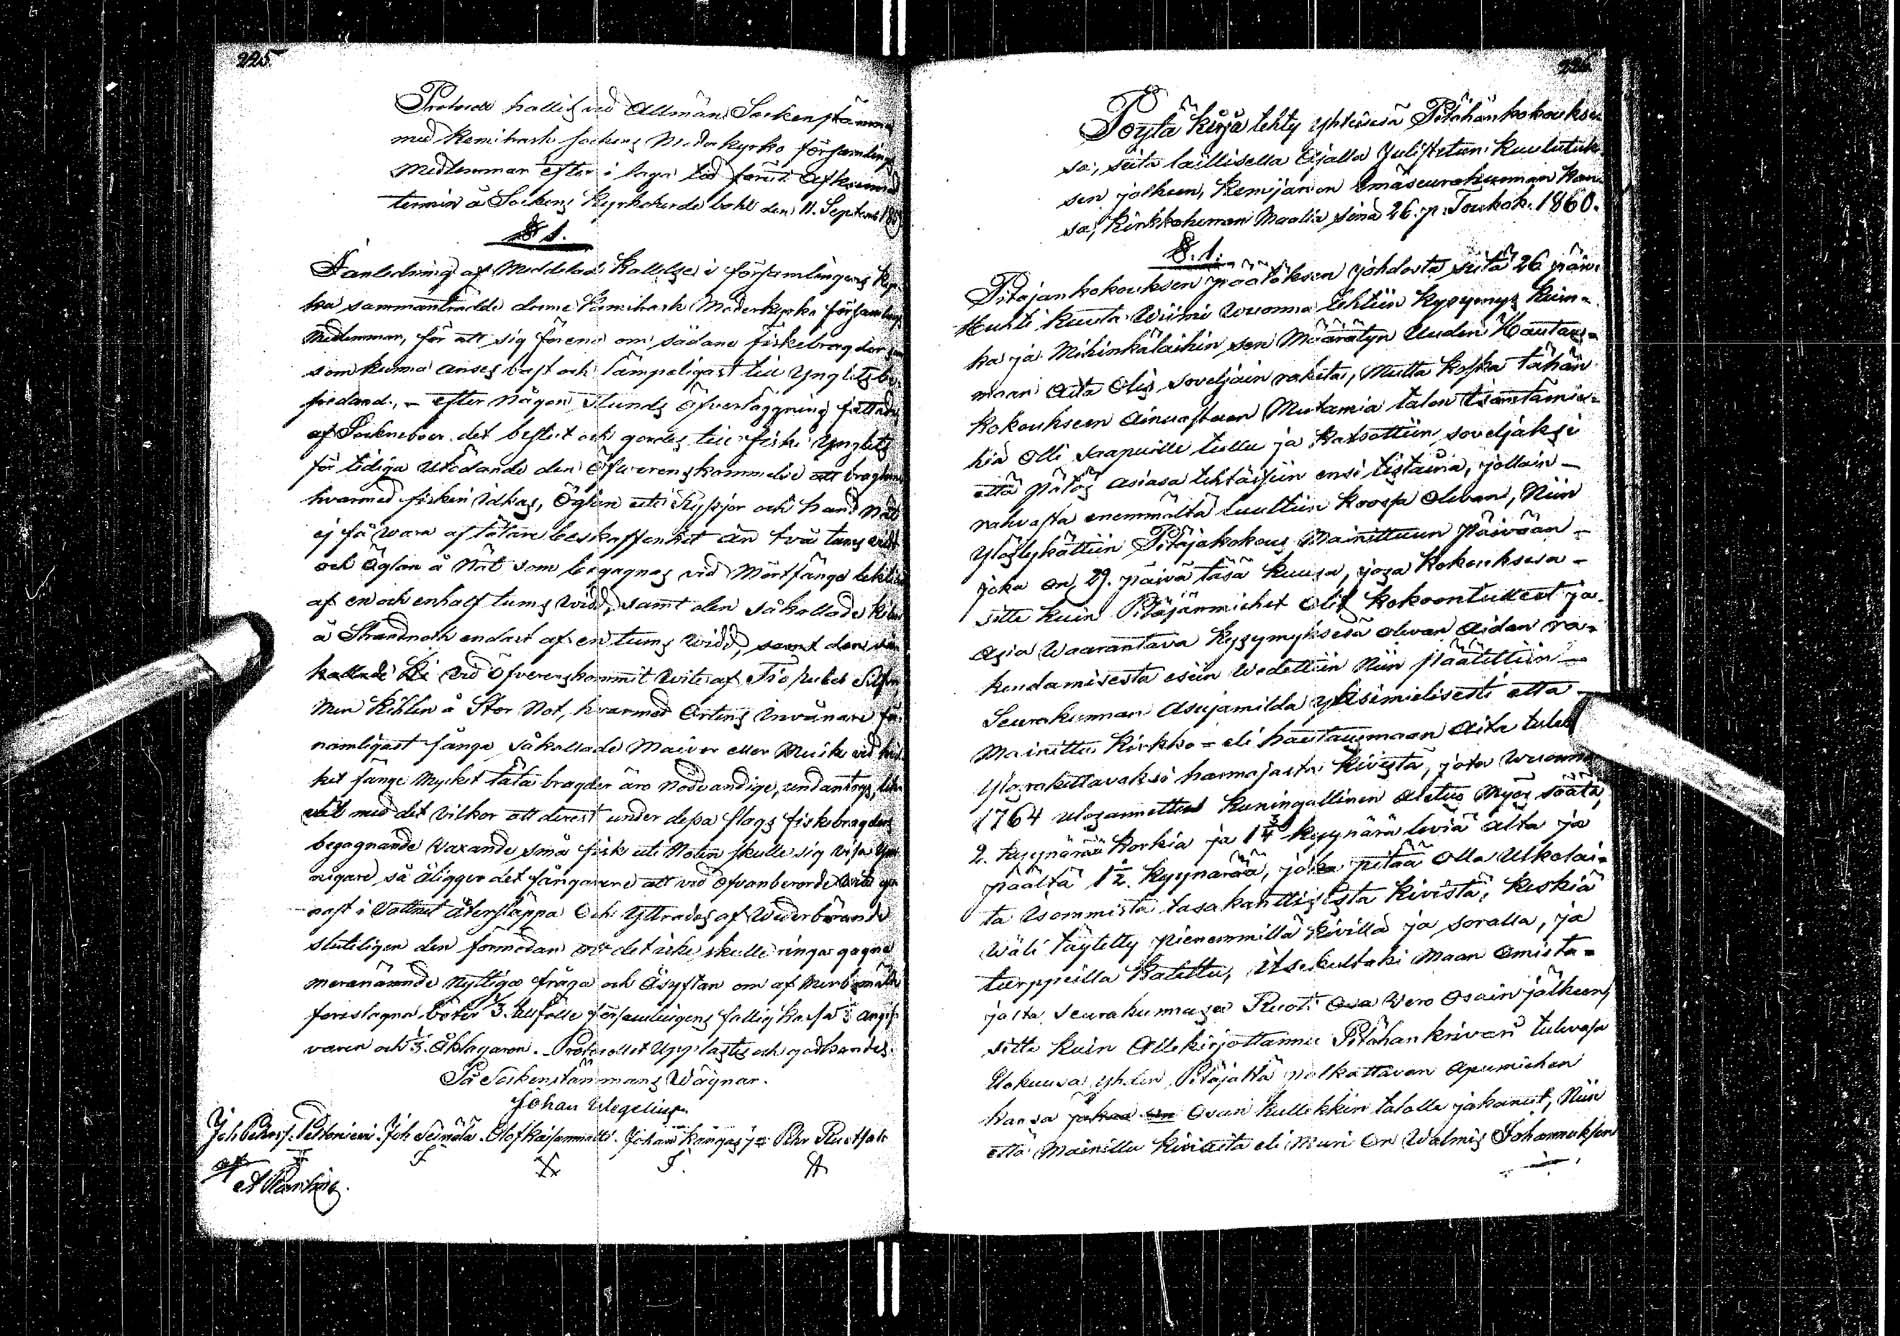 225
Protocoll hållit vid Allmän Sockenstämma
med Kemiträsk Sockens Moderkyrko församlings
Medlemmar efter i laga tid förut afkunnad
termin å Sockens Kyrkoherde bohl den 11. Septemb 1859
§ 1.
I anledning af Meddelad Kallelse i församlingens Kyr-
ka sammanträdde denne Kemiträsk Moderkyrko församlings
Medlemmar, för att sig förena om sådane fiskebragder
som kunna anses bäst och lämpeligast till Ynglets be-
fredande, - efter någon stunds öfverläggning fattades
af Sockneboer det beslut och gordes till fiske Ynglets
för tidiga utödande den Öfverenskommelse att bragderne
hvarmed fisken idkas, Öglen uti Ryssjor och hand Nät
ej få vara af tätare beskaffenhet än två tums vidd
och Öglan å Nät som begagnas vid Mörtfånge
af en och enhalf tums vidd, samt den så kallade Kilen
å Strandnoth endast af en tums vidd, samt den så
kallade vid öfverenskommit vite af Tio rubel Silfver
Men Kihlen å Stor Not, hvarmed Ortens Invånare för
nämligast fånga så kallade Maivor eller Muik vid hvil
ket fånge Mycket täta bragder äro nödvändige, undantogs,
med det vilkor att derest under dessa slags fiskebragders
begagnande vaxande små fisk uti Noten skulle sig visa
så åligger det fångarene att vid ofvanberörde vite ge-
nast i Vattnet återsläppa Och yttrades af Vederbörande
sluteligen den förmodan om det icke skulle ringa gagna
merenämnde nyttiga fråga och Åsyftan om af
föreslagna böter 1/3. tillfölle församlingens fattig kassa 1/3 angif-
varen och 1/3. Åklagaren. - Protocollet upplästes och godkändes.
På Sockenstämmans Wägnar.
Johan Wegelius
Joh. Peterss. Pettonieni Joh. Seinälä. Olof Kaisanniemi. Johan Kangas j: Pehr Ruotsala
226
Pöytä kirja tehty yhteisesä Pitähän kokoukse-
sa, seitä laillisella Ajalla Julistetun Kuulutuk-
sen jälkeen, Kemijärven Emäseurakunnan Kan-
sa, Kirkkoherran Maalla sinä 26. p: Toukok. 1860.
§. 1.
Pitäjankokouksen päätöksen johdosta siitä 26 päiv.
Huhti kuuta Wiime Wuonna tehtiin Kysymys kuin-
ka ja Mihinkälaihin sen Määrätyn Uuden Hautaus-
maan Aita Olis soveljain raketa, Mutta koska tähän
kokoukseen Ainoastaan Muutamia talon isäntämie-
hiä Olli saapuille tullu ja katsottiin soveljaksi
että päätös asiasa tehtäisiin ensi tiistaina, jolloin
rahvasta enemmältä luultiin koossa olevan, Niin
Ylöslykättiin Pitäjäkokous Mainittuun päivään
joka on 29. päivä täsä kuusa, josa Kokouksesa -
sitte kuin Pitäjänmiehet Olit Kokoontulleet ja
asia Waarantava Kysymyksesä olevan Aidan ra-
kendamisesta esiin Wedettiin Niin päätettiin
Seurakunnan Asujamilda yksimielisesti että
Mainittu Kirkko- eli hautausmaan Aita tulee
Ylösrakettavaksi harmajasta Kivistä, jota Wuonna
1764 Ulosannettu Kuningallinen Asetus Myös säätä,
2. kyynärää Korkia ja 1 3/4 kyynärä leviä alta ja
päältä 1 1/2. Kyynärää, joka pitää Olla Ulkolai-
ta isommista tasakanttisista kivistä, Keskiä
Wäli täytetty pienemmillä kivillä ja soralla, ja
turppeilla Katettu, itse kultaki Maan Omista-
jasta seurakunnasa Ruoti Osa Wero Osain jälkeen
sitte kuin Allekirjottannu Pitähän krivari tulevasa
Elokuusa yhden Pitäjältä palkattavan Apumiehen
kansa Osan kullekkin talolle jakanut, Niin
että Mainittu kiviaita eli Muri on Walmis Johannuksen